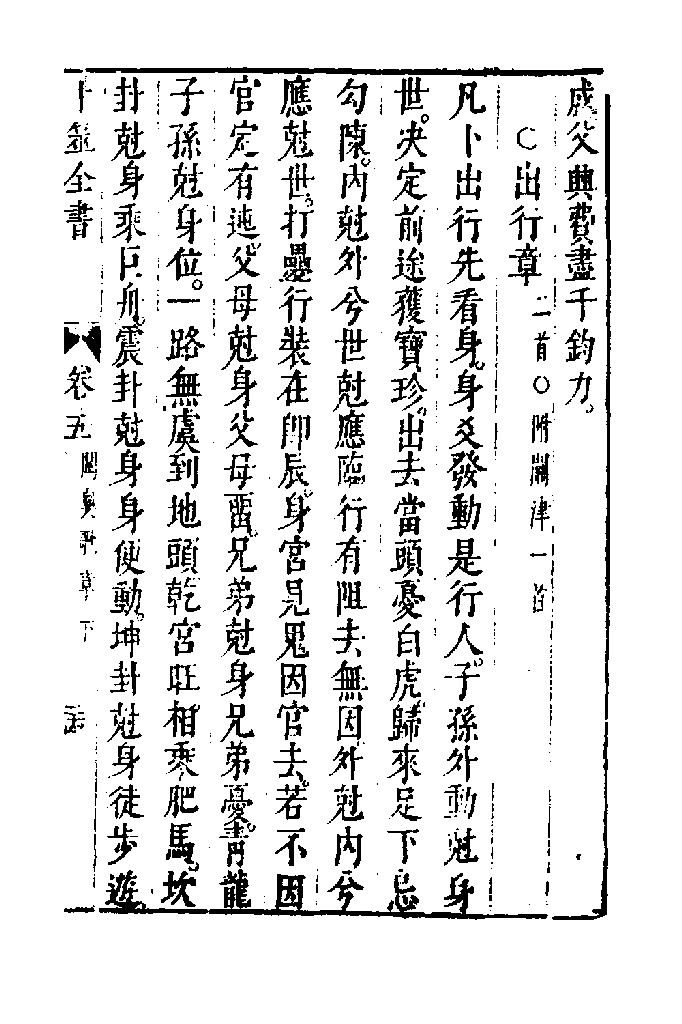 成父與費盡千鈞力。
○出行章 二首○附關津一首
凡卜出行先看身。身爻發動是行人。子孫外動尅身
世。决定前途獲寶珍。出去當頭憂白虎。歸來足下忌
勾陳。內尅外兮世尅應臨行有阻去無因外尅內兮
應尅世。打疊行裝在即辰。身宮見鬼因官去。若不因
官定有迍。父母尅身父母留。兄弟尅身兄弟憂。青龍
子孫尅身位。一路無虞到地頭乾宮旺相乘肥馬。坎
卦尅身乘巨舟。震卦尅身身便動。坤卦尅身徒步遊。
卜筮全書 卷五 闡奧歌章下